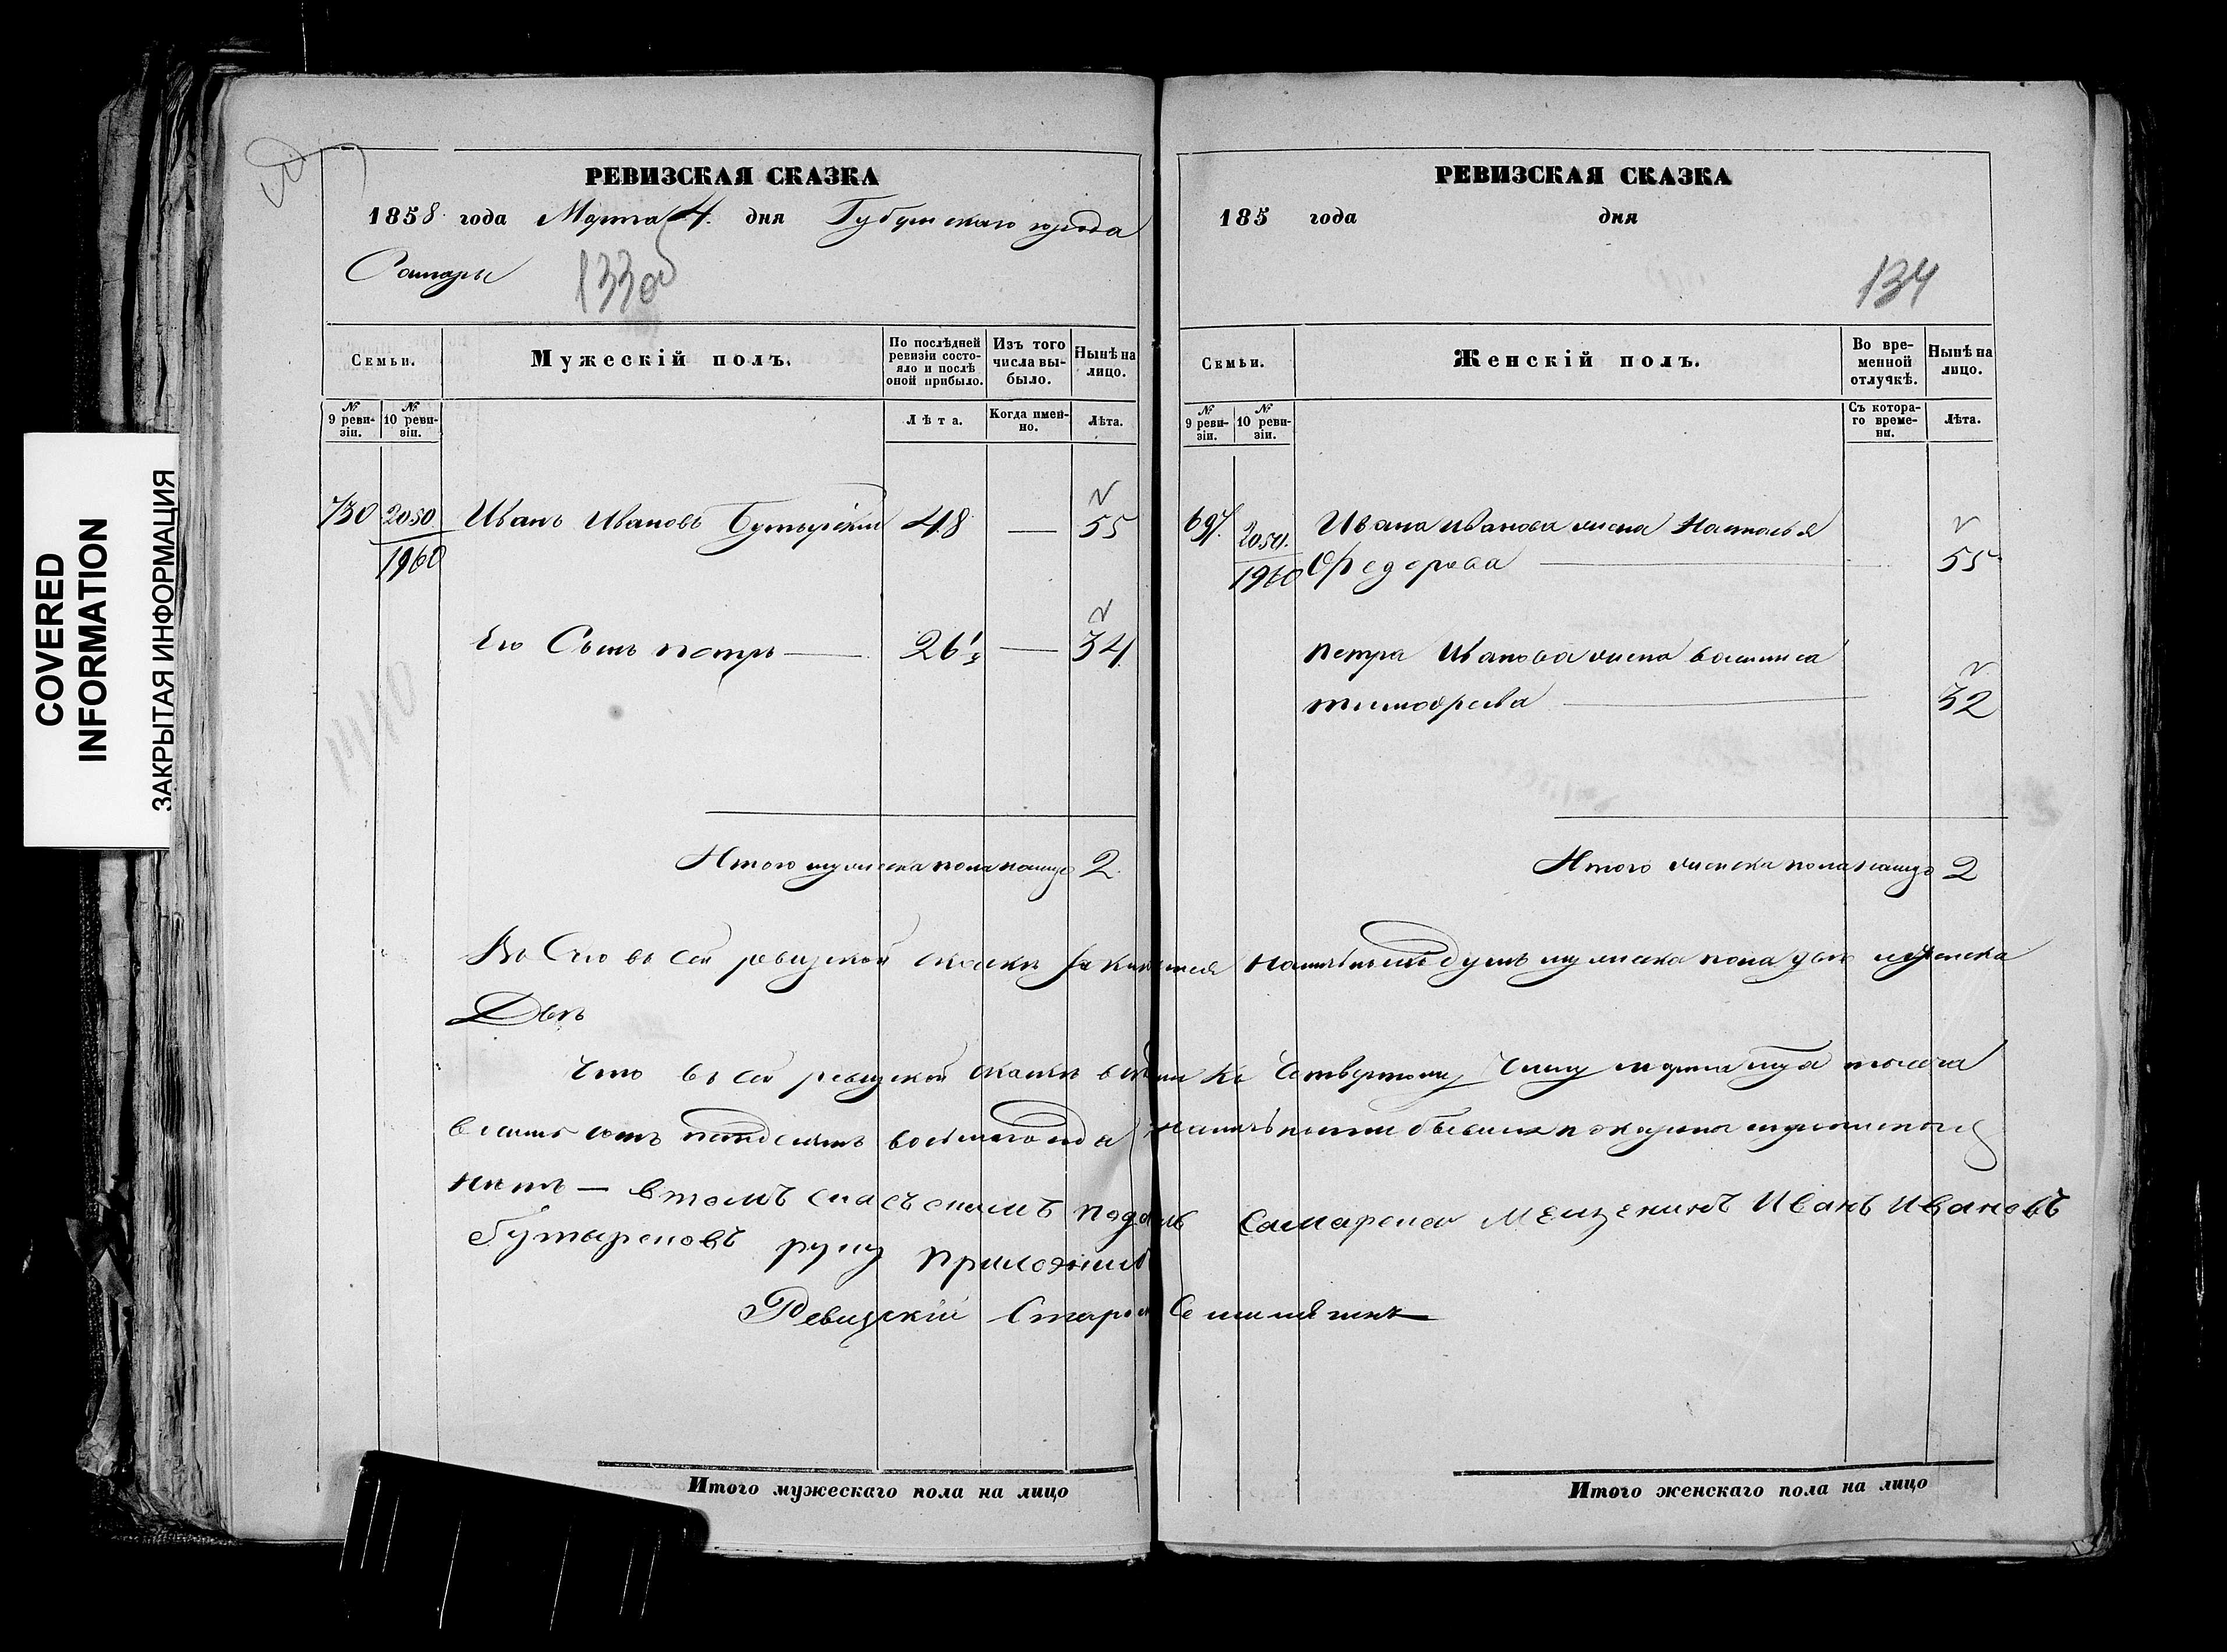 COVERED
INFORMATION
ЗАКРЫТАЯ ИНФОРМАЦИЯ
РЕВИЗСКАЯ СКАЗКА
1858 года Марта 4. дня Губернскаго города
Самары
133об
Семьи.
Мужескій полъ.
По послѣдней ревизіи состояло и послѣ оной прибыло.
Изъ того числа выбыло.
Нынѣ на лицо.
№ 9 ревизіи.
№ 10 ревизіи.
Лѣта.
Когда именно.
Лѣта.
730 2050 Иванъ Ивановъ 48 — 55
1960
Его Сынъ петръ — 26 — 34
1440
Итого мужеска пола налицо 2
РЕВИЗСКАЯ СКАЗКА
185 года дня
134
Семьи.
Женскій полъ.
Во временной отлучкѣ.
Нынѣ на лицо.
№ 9 ревизіи.
№ 10 ревизіи.
Съ котораго времени.
Лѣта.
697. 2050. Ивана Иванова жена Наталья
1960 Федорова — 55
петра Иванова жена василиса
тимофеева — 32
Итого женска пола налицо 2
Всего въ сей ревизской сказки душъ мужеска пола двѣ женска
Двѣ
Что въ сей ревизской сказкѣ всѣ Четвертому Числу марта тысяча
восемь сотъ пятдесятъ восьмаго года
нѣтъ — втомъ подалъ самарской мещенинъ Иванъ Ивановъ
руку приложилъ
Ревизскій
Итого мужескаго пола на лицо
Итого женскаго пола на лицо